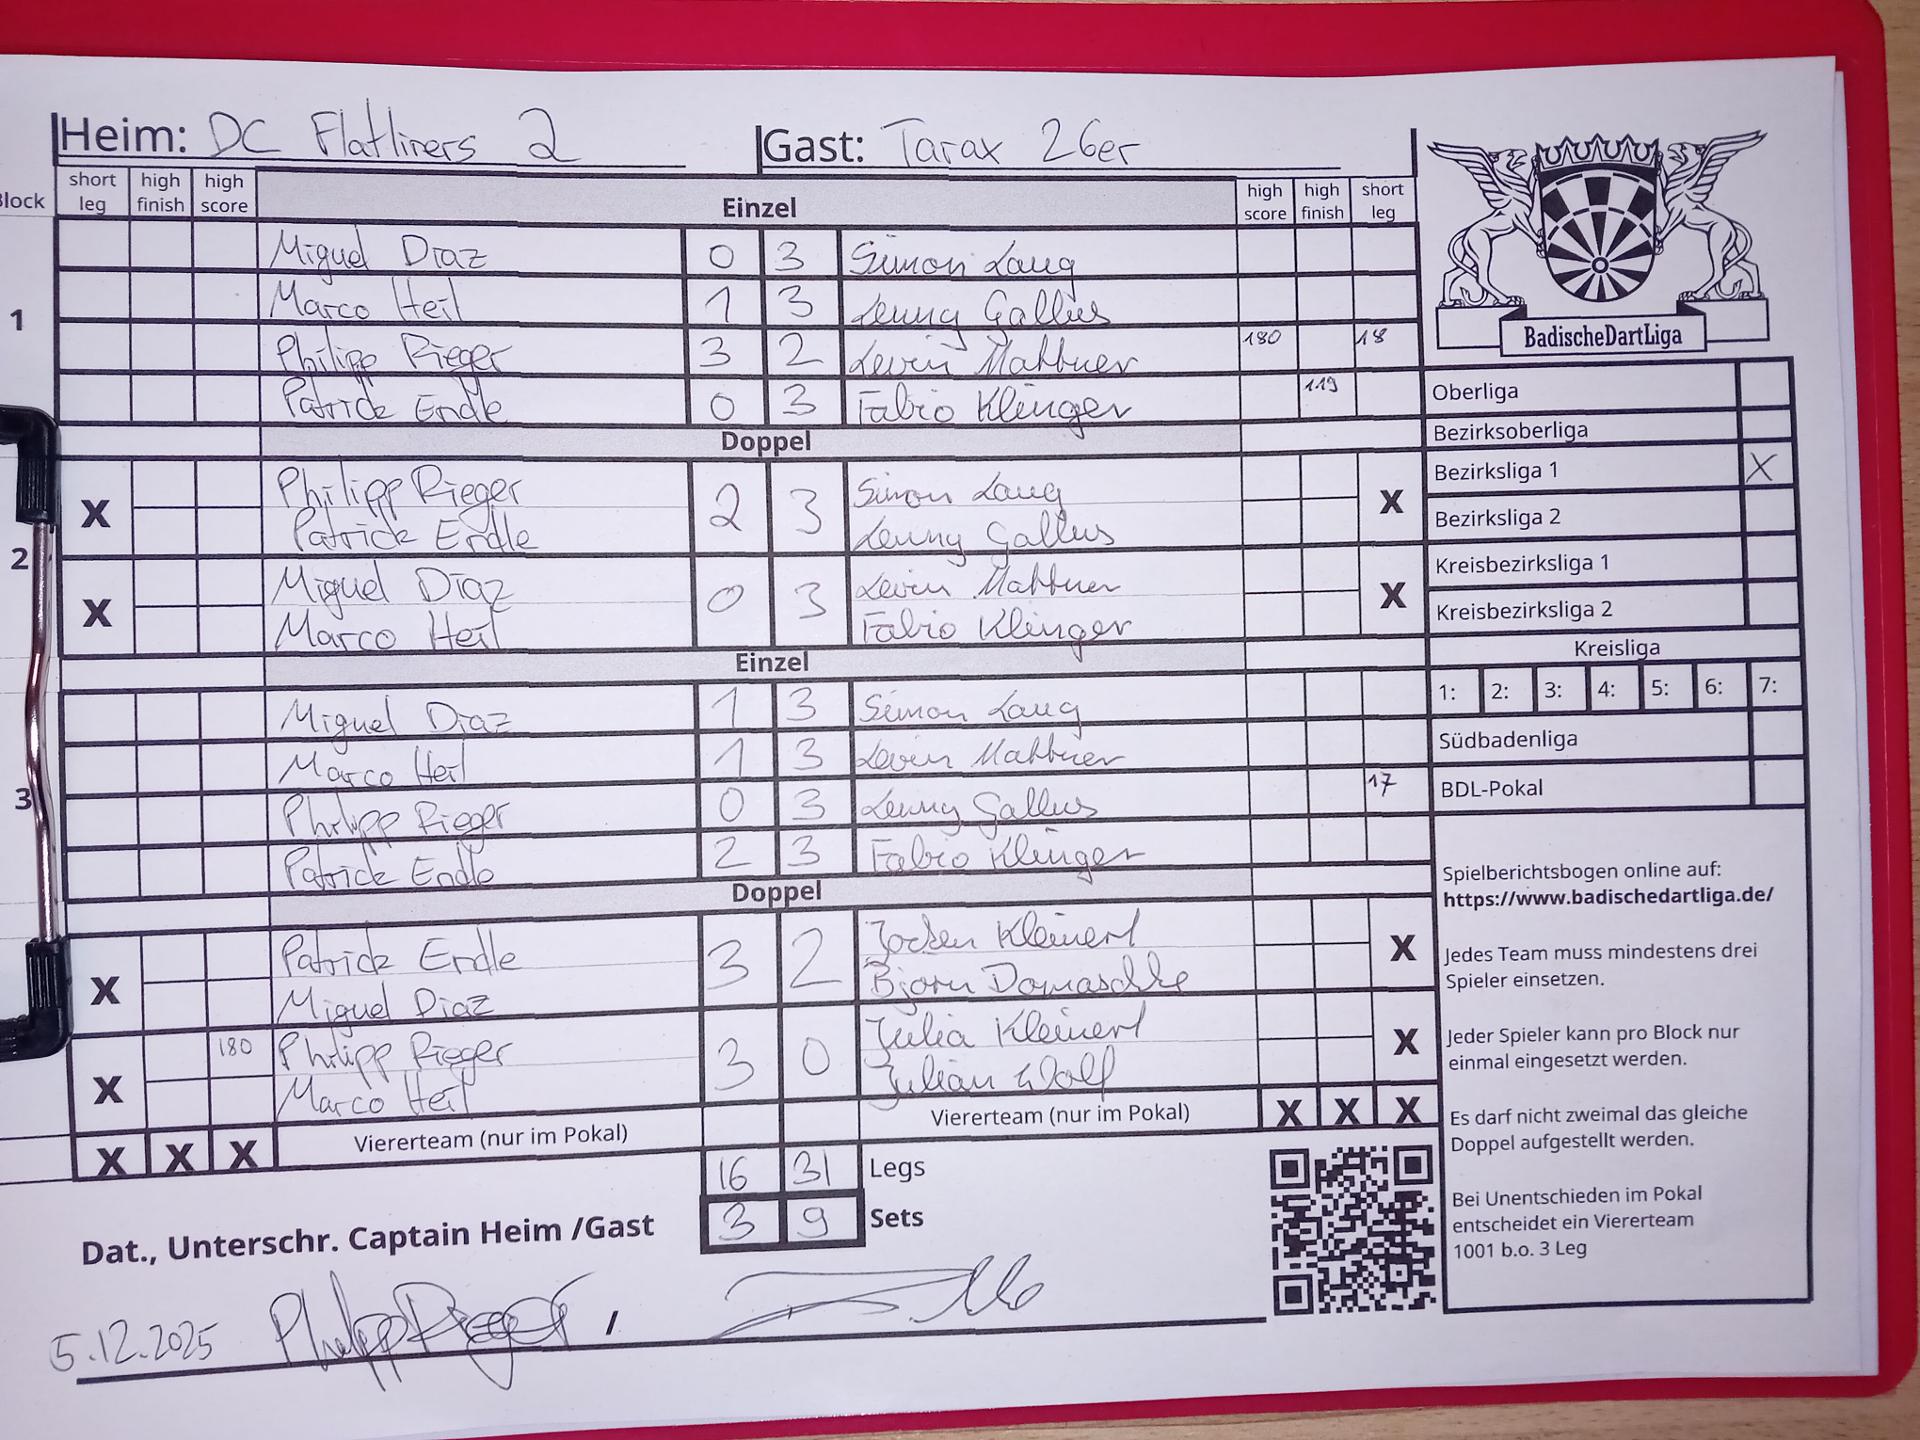 Heim: DC Flatliners 2 Gast: Tarax 26er
Block short leg high finish high score Einzel high score high finish short leg
Miguel Diaz 0 3 Simon Laug
1 Marco Heil 1 3 Lenny Gallus
Philipp Rieger 3 2 Levin Mattner 180 18
Patrick Endle 0 3 Fabio Klinger 119
Doppel
X Philipp Rieger 2 3 Simon Laug X
Patrick Endle Lenny Gallus
2
X Miguel Diaz 0 3 Levin Mattner X
Marco Heil Fabio Klinger
Einzel
Miguel Diaz 1 3 Simon Laug
Marco Heil 1 3 Levin Mattner
3 Philipp Rieger 0 3 Lenny Gallus 17
Patrick Endle 2 3 Fabio Klinger
Doppel
X Patrick Endle 3 2 Jochen Kleinert X
Miguel Diaz Bjorn Domaschke
X 180 Philipp Rieger 3 0 Julia Kleinert X
Marco Heil Julian Wolf
X X X Viererteam (nur im Pokal) Viererteam (nur im Pokal) X X X
16 31 Legs
3 9 Sets
Dat., Unterschr. Captain Heim /Gast
5.12.2025 Philipp Rieger /
BadischeDartLiga
Oberliga
Bezirksoberliga
Bezirksliga 1 X
Bezirksliga 2
Kreisbezirksliga 1
Kreisbezirksliga 2
Kreisliga
1: 2: 3: 4: 5: 6: 7:
Südbadenliga
BDL-Pokal
Spielberichtsbogen online auf:
https://www.badischedartliga.de/
Jedes Team muss mindestens drei
Spieler einsetzen.
Jeder Spieler kann pro Block nur
einmal eingesetzt werden.
Es darf nicht zweimal das gleiche
Doppel aufgestellt werden.
Bei Unentschieden im Pokal
entscheidet ein Viererteam
1001 b.o. 3 Leg